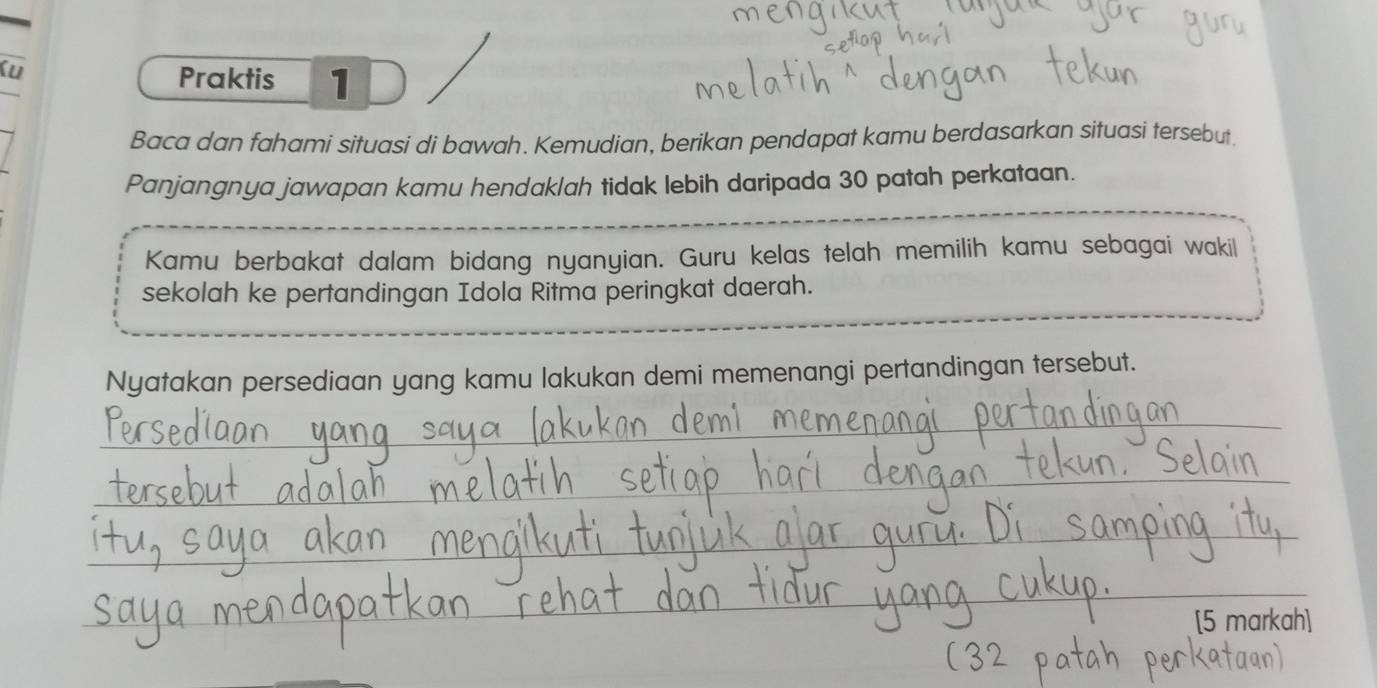 mengikut tunjuk ajar guru
setiap hari
melatih ^ dengan tekun
Ku
Praktis 1
Baca dan fahami situasi di bawah. Kemudian, berikan pendapat kamu berdasarkan situasi tersebut.
Panjangnya jawapan kamu hendaklah tidak lebih daripada 30 patah perkataan.
Kamu berbakat dalam bidang nyanyian. Guru kelas telah memilih kamu sebagai wakil
sekolah ke pertandingan Idola Ritma peringkat daerah.
Nyatakan persediaan yang kamu lakukan demi memenangi pertandingan tersebut.
Persediaan yang saya lakukan demi memenangi pertandingan
tersebut adalah melatih setiap hari dengan tekun. Selain
itu, saya akan mengikuti tunjuk ajar guru. Di samping itu,
saya mendapatkan rehat dan tidur yang cukup.
[5 markah]
(32 patah perkataan)